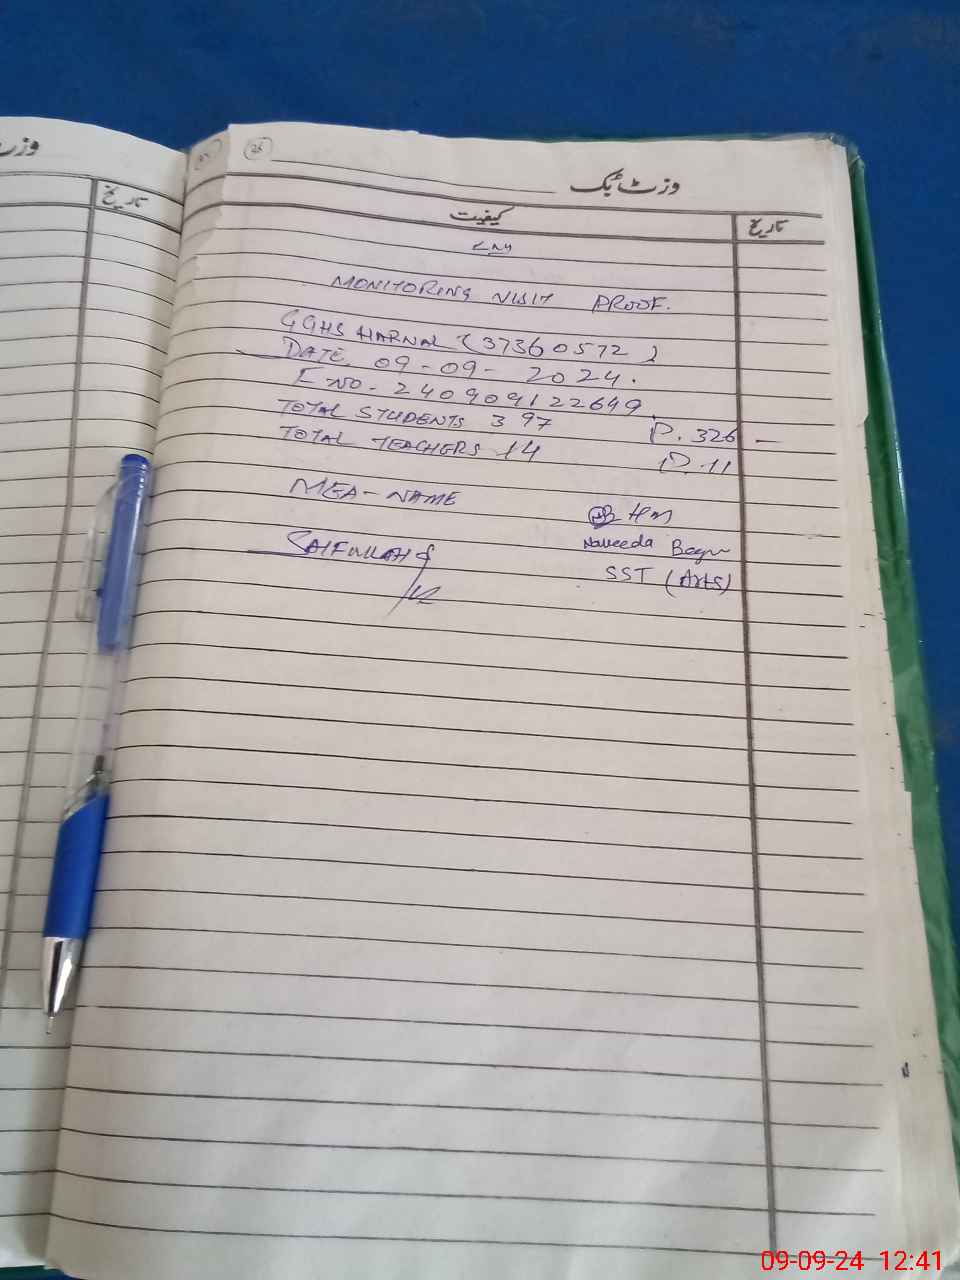 وزٹ
تاریخ
26
وزٹ بک
کیفیت
تاریخ
MONITORING VISIT PROOF.
GGHS HARNAL (37360572)
DATE 09-09-2024.
E NO. 240909122649
TOTAL STUDENTS 397 P. 326
TOTAL TEACHERS 14 P. 11
MEA-NAME
HM
SAIFULLAH
Naveeda Begum
SST (Arts)
09-09-24 12:41